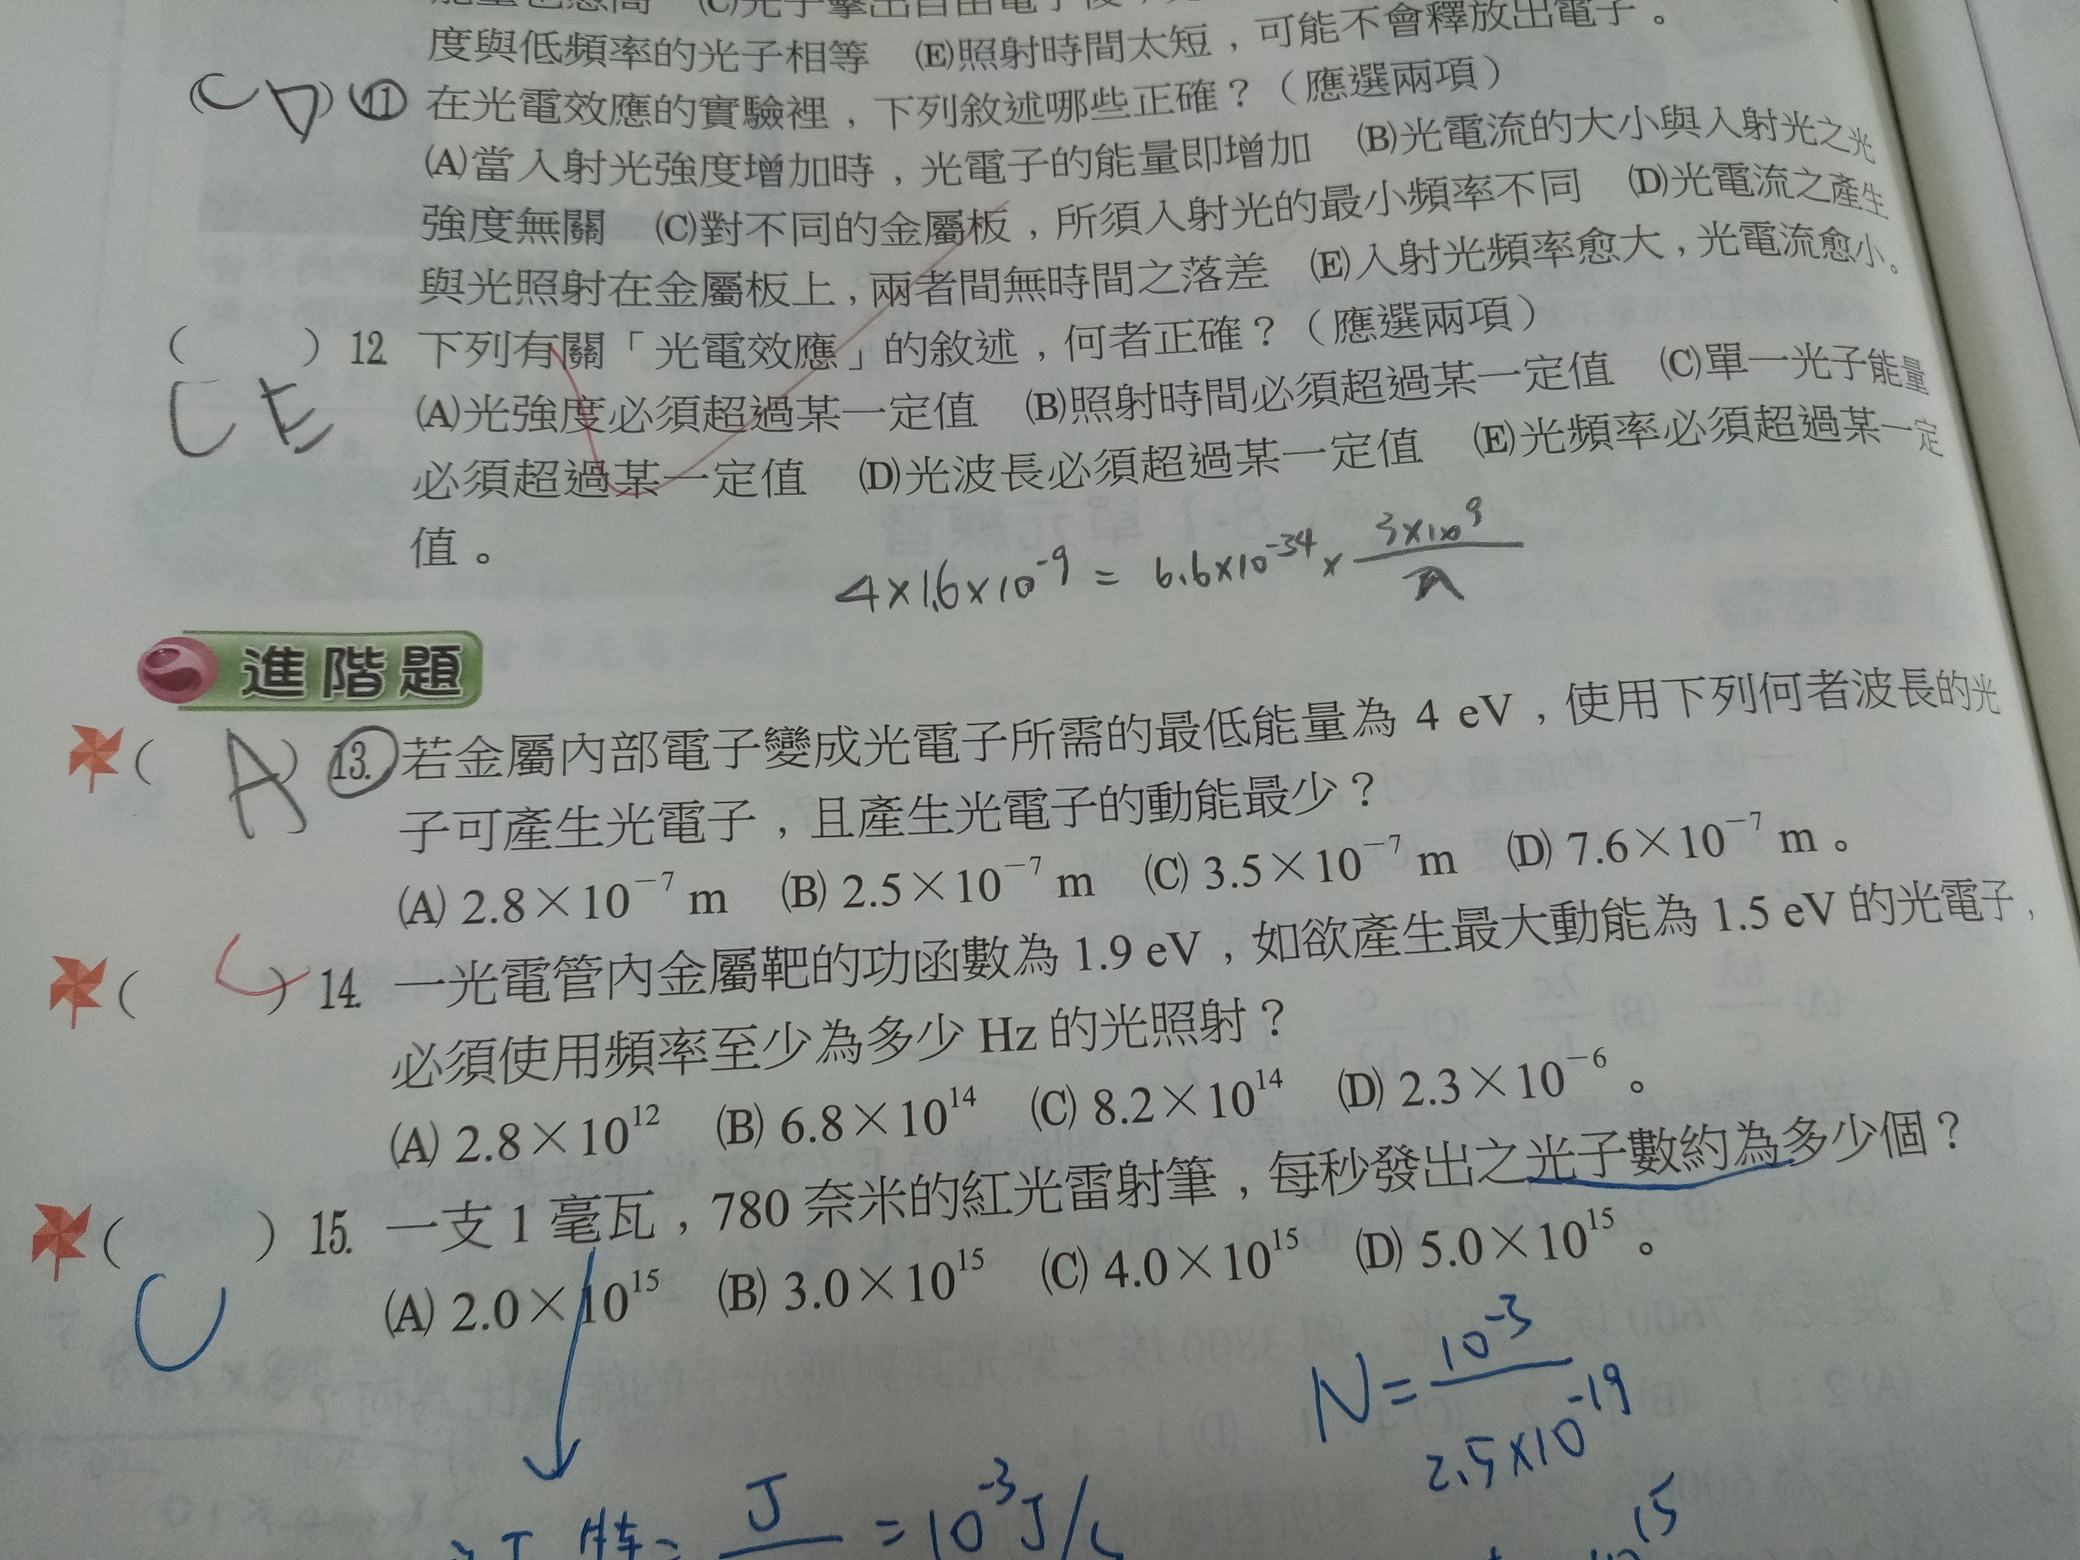 能量也愈高 (C)光子擊出自由電子後,
度與低頻率的光子相等 (E)照射時間太短,可能不會釋放出電子。
(CD) 11 在光電效應的實驗裡,下列敘述哪些正確?(應選兩項)
(A)當入射光強度增加時,光電子的能量即增加 (B)光電流的大小與入射光之光
強度無關 (C)對不同的金屬板,所須入射光的最小頻率不同 (D)光電流之產生
與光照射在金屬板上,兩者間無時間之落差 (E)入射光頻率愈大,光電流愈小。
( ) 12. 下列有關「光電效應」的敘述,何者正確?(應選兩項)
CE (A)光強度必須超過某一定值 (B)照射時間必須超過某一定值 (C)單一光子能量
必須超過某一定值 (D)光波長必須超過某一定值 (E)光頻率必須超過某一定
值。
4×1.6×10⁻⁹ = 6.6×10⁻³⁴ × 3×10⁹/λ
進階題
(A) 13. 若金屬內部電子變成光電子所需的最低能量為 4 eV,使用下列何者波長的光
子可產生光電子,且產生光電子的動能最少?
(A) 2.8×10⁻⁷ m (B) 2.5×10⁻⁷ m (C) 3.5×10⁻⁷ m (D) 7.6×10⁻⁷ m。
(C) 14. 一光電管內金屬靶的功函數為 1.9 eV,如欲產生最大動能為 1.5 eV 的光電子,
必須使用頻率至少為多少 Hz 的光照射?
(A) 2.8×10¹² (B) 6.8×10¹⁴ (C) 8.2×10¹⁴ (D) 2.3×10⁻⁶。
( ) 15. 一支 1 毫瓦,780 奈米的紅光雷射筆,每秒發出之光子數約為多少個?
C (A) 2.0×10¹⁵ (B) 3.0×10¹⁵ (C) 4.0×10¹⁵ (D) 5.0×10¹⁵。
N = 10⁻³/2.5×10⁻¹⁹
J = 10⁻³ J/
15